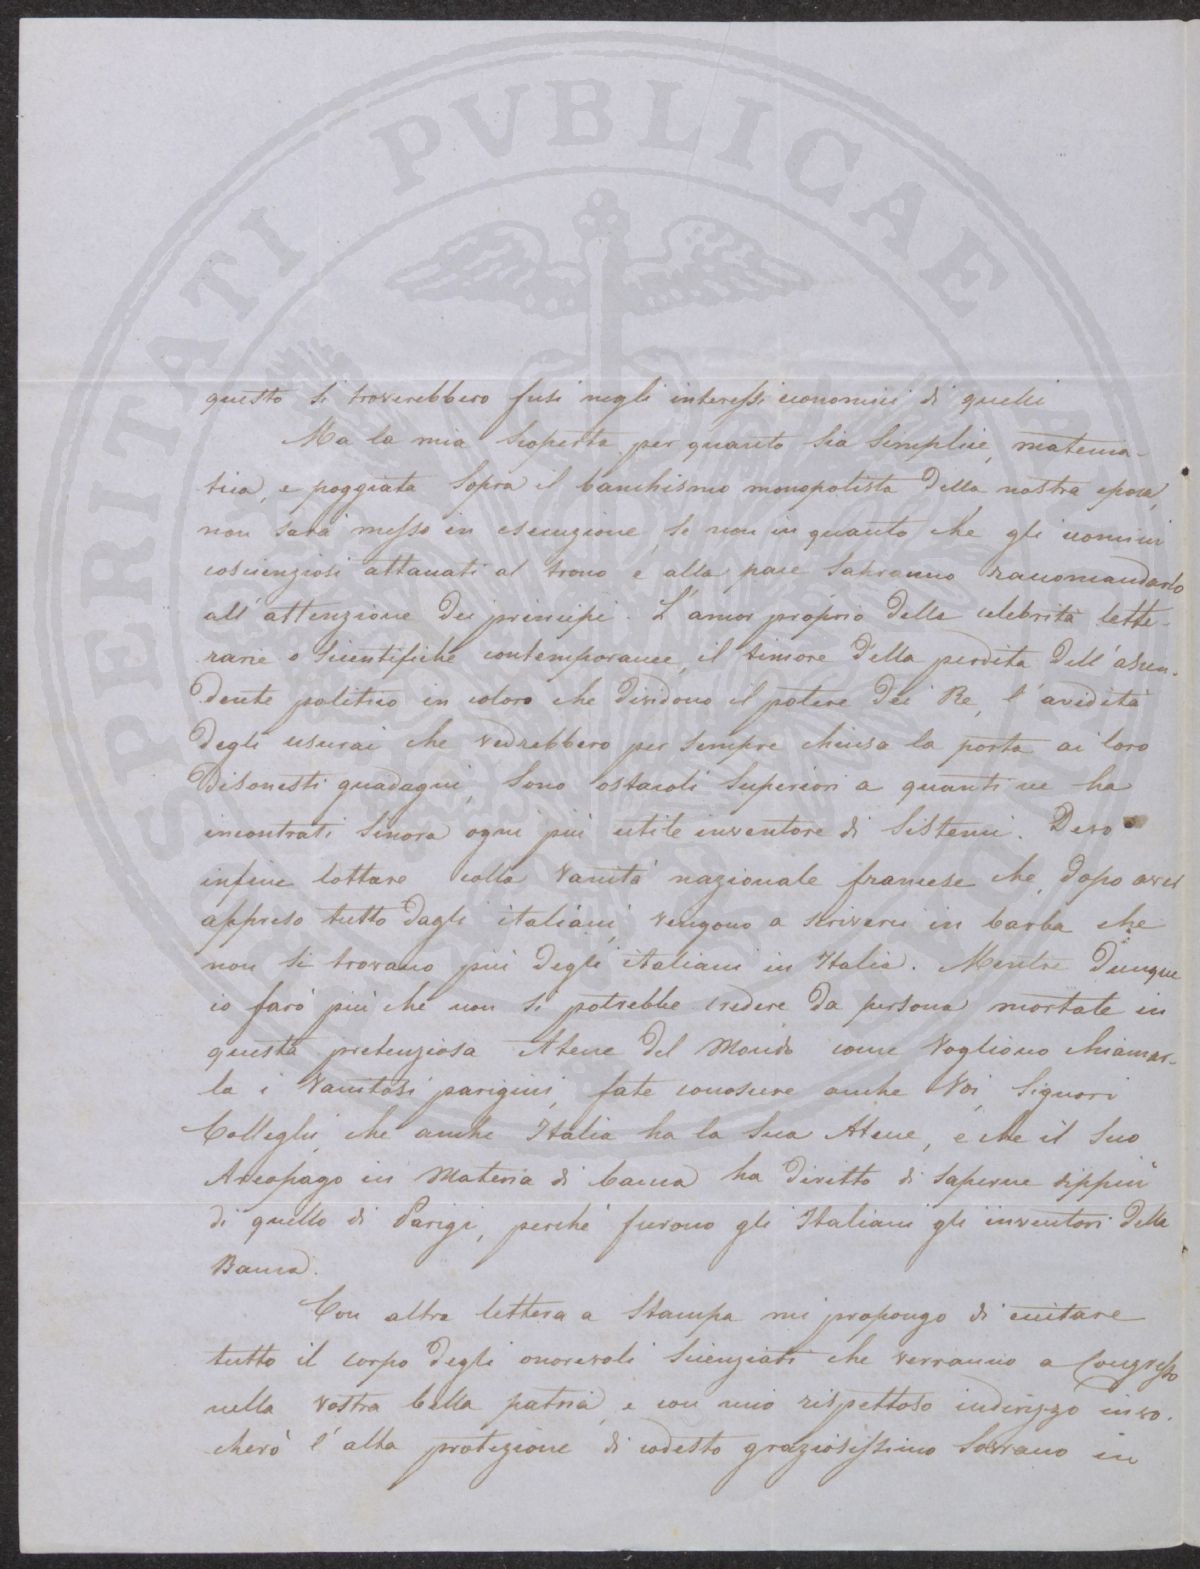 PROSPERITATI PVBLICAE AVGENDAE
questo si troverebbero fusi negli interessi economici di quelli
Ma la mia scoperta per quanto sia semplice, matema-
tica, e poggiata sopra il banchismo monopolista della nostra epoca,
non sarà messo in esecuzione, se non in quanto che gli uomini
coscienziosi attaccati al trono e alla pace sapranno raccomandarlo
all'attenzione dei principi. L'amor proprio delle celebrità lette-
rarie o scientifiche contemporanee, il timore della perdita dell'ascen-
dente politico in coloro che dividono il potere dei Re, l'avidità
degli usurai che vedrebbero per sempre chiusa la porta ai loro
disonesti guadagni, sono ostacoli superiori a quanti ne ha
incontrati sinora ogni più utile inventore di sistemi. Devo
infine lottare colla vanità nazionale francese che, dopo aver
appreso tutto dagli italiani, vengono a scriverci in barba che
non si trovano più degli italiani in Italia. Mentre dunque
io farò più che non si potrebbe credere da persona mortale in
questa pretenziosa Atene del Mondo come vogliono chiamar-
la i vanitosi parigini, fate conoscere anche Voi, Signori
Colleghi, che anche Italia ha la sua Atene, e che il suo
Areopago in materia di banca ha diritto di saperne sippiù
di quello di Parigi, perché furono gli Italiani gli inventori della
Banca.
Con altra lettera a stampa mi propongo di invitare
tutto il corpo degli onorevoli scienziati che verranno a Congresso
nella vostra bella patria, e con mio rispettoso indirizzo invo-
cherò l'alta protezione di codesto graziosissimo Sovrano in